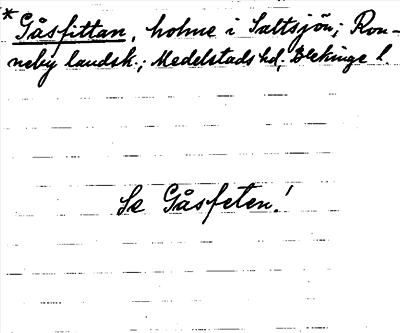 * Gåsfittan, holme i Saltsjön; Ron-
neby landsk.; Medelstads hd, Blekinge l.
Se Gåsfeten!